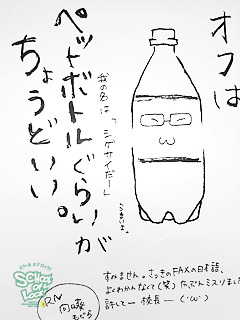 オフは
ペットボトルぐらいが
ちょうどいい。
我の名は
シゲサイだー
すみません。さっきのFAXの日本語、
よくわかんなくて(笑)たぶんミスりました
許してー 校長ー (･ω･)
RN
もぐら
SCHOOL
OF
LOCK!